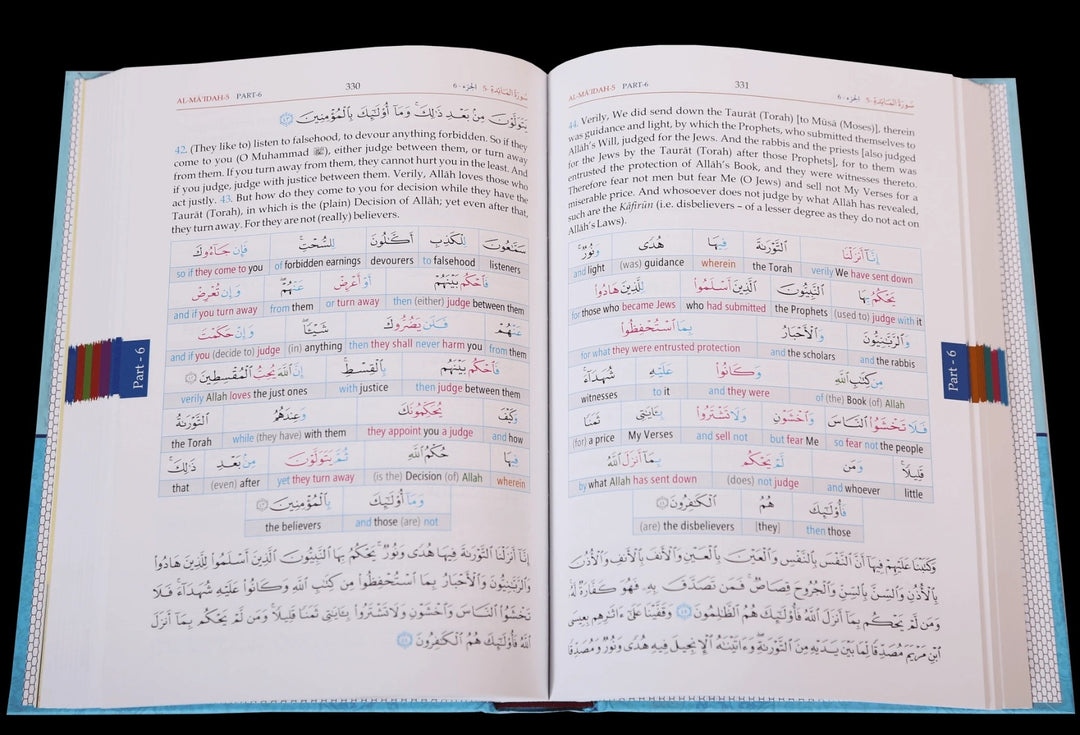 AL-MĀ'IDAH-5 PART-6 330 الجزء - 6 سورة المائدة - 5
يَتَوَلَّوْنَ مِنْ بَعْدِ ذَٰلِكَ ۚ وَمَا أُولَٰئِكَ بِالْمُؤْمِنِينَ ﴿٤٣﴾
42. (They like to) listen to falsehood, to devour anything forbidden. So if they
come to you (O Muhammad ﷺ), either judge between them, or turn away
from them. If you turn away from them, they cannot hurt you in the least. And
if you judge, judge with justice between them. Verily, Allāh loves those who
act justly. 43. But how do they come to you for decision while they have the
Taurāt (Torah), in which is the (plain) Decision of Allāh; yet even after that,
they turn away. For they are not (really) believers.
سَمَّاعُونَ لِلْكَذِبِ أَكَّالُونَ لِلسُّحْتِ ۚ فَإِن جَاءُوكَ
so if they come to you of forbidden earnings devourers to falsehood listeners
فَاحْكُم بَيْنَهُمْ أَوْ أَعْرِضْ عَنْهُمْ ۖ وَإِن تُعْرِضْ
and if you turn away from them or turn away then (either) judge between them
عَنْهُمْ فَلَن يَضُرُّوكَ شَيْئًا ۖ وَإِنْ حَكَمْتَ
and if you (decide to) judge (in) anything then they shall never harm you from them
فَاحْكُم بَيْنَهُم بِالْقِسْطِ ۚ إِنَّ اللَّهَ يُحِبُّ الْمُقْسِطِينَ ﴿٤٢﴾
verily Allah loves the just ones with justice then judge between them
وَكَيْفَ يُحَكِّمُونَكَ وَعِندَهُمُ التَّوْرَاةُ
the Torah while (they have) with them they appoint you a judge and how
فِيهَا حُكْمُ اللَّهِ ثُمَّ يَتَوَلَّوْنَ مِن بَعْدِ ذَٰلِكَ ۚ
that (even) after yet they turn away (is the) Decision (of) Allah wherein
وَمَا أُولَٰئِكَ بِالْمُؤْمِنِينَ ﴿٤٣﴾
the believers and those (are) not
إِنَّا أَنزَلْنَا التَّوْرَاةَ فِيهَا هُدًى وَنُورٌ ۚ يَحْكُمُ بِهَا النَّبِيُّونَ الَّذِينَ أَسْلَمُوا لِلَّذِينَ هَادُوا
وَالرَّبَّانِيُّونَ وَالْأَحْبَارُ بِمَا اسْتُحْفِظُوا مِن كِتَابِ اللَّهِ وَكَانُوا عَلَيْهِ شُهَدَاءَ ۚ فَلَا
تَخْشَوُا النَّاسَ وَاخْشَوْنِ وَلَا تَشْتَرُوا بِآيَاتِي ثَمَنًا قَلِيلًا ۚ وَمَن لَّمْ يَحْكُم بِمَا أَنزَلَ
اللَّهُ فَأُولَٰئِكَ هُمُ الْكَافِرُونَ ﴿٤٤﴾
Part - 6
AL-MĀ'IDAH-5 PART-6 331 الجزء - 6 سورة المائدة - 5
44. Verily, We did send down the Taurāt (Torah) [to Mūsā (Moses)], therein
was guidance and light, by which the Prophets, who submitted themselves to
Allāh's Will, judged for the Jews. And the rabbis and the priests [also judged
for the Jews by the Taurāt (Torah) after those Prophets], for to them was
entrusted the protection of Allāh's Book, and they were witnesses thereto.
Therefore fear not men but fear Me (O Jews) and sell not My Verses for a
miserable price. And whosoever does not judge by what Allāh has revealed,
such are the Kāfirūn (i.e. disbelievers – of a lesser degree as they do not act on
Allāh's Laws).
إِنَّا أَنزَلْنَا التَّوْرَاةَ فِيهَا هُدًى وَنُورٌ ۚ
and light (was) guidance wherein the Torah verily We have sent down
يَحْكُمُ بِهَا النَّبِيُّونَ الَّذِينَ أَسْلَمُوا لِلَّذِينَ هَادُوا
for those who became Jews who had submitted the Prophets (used to) judge with it
وَالرَّبَّانِيُّونَ وَالْأَحْبَارُ بِمَا اسْتُحْفِظُوا
for what they were entrusted protection and the scholars and the rabbis
مِن كِتَابِ اللَّهِ وَكَانُوا عَلَيْهِ شُهَدَاءَ ۚ
witnesses to it and they were of (the) Book (of) Allah
فَلَا تَخْشَوُا النَّاسَ وَاخْشَوْنِ وَلَا تَشْتَرُوا بِآيَاتِي ثَمَنًا
(for) a price My Verses and sell not but fear Me so fear not the people
قَلِيلًا ۚ وَمَن لَّمْ يَحْكُم بِمَا أَنزَلَ اللَّهُ
by what Allah has sent down (does) not judge and whoever little
فَأُولَٰئِكَ هُمُ الْكَافِرُونَ ﴿٤٤﴾
(are) the disbelievers [they] then those
وَكَتَبْنَا عَلَيْهِمْ فِيهَا أَنَّ النَّفْسَ بِالنَّفْسِ وَالْعَيْنَ بِالْعَيْنِ وَالْأَنفَ بِالْأَنفِ وَالْأُذُنَ
بِالْأُذُنِ وَالسِّنَّ بِالسِّنِّ وَالْجُرُوحَ قِصَاصٌ ۚ فَمَن تَصَدَّقَ بِهِ فَهُوَ كَفَّارَةٌ لَّهُ ۚ
وَمَن لَّمْ يَحْكُم بِمَا أَنزَلَ اللَّهُ فَأُولَٰئِكَ هُمُ الظَّالِمُونَ ﴿٤٥﴾ وَقَفَّيْنَا عَلَىٰ آثَارِهِم بِعِيسَى
ابْنِ مَرْيَمَ مُصَدِّقًا لِّمَا بَيْنَ يَدَيْهِ مِنَ التَّوْرَاةِ ۖ وَآتَيْنَاهُ الْإِنجِيلَ فِيهِ هُدًى وَنُورٌ وَمُصَدِّقًا
Part - 6